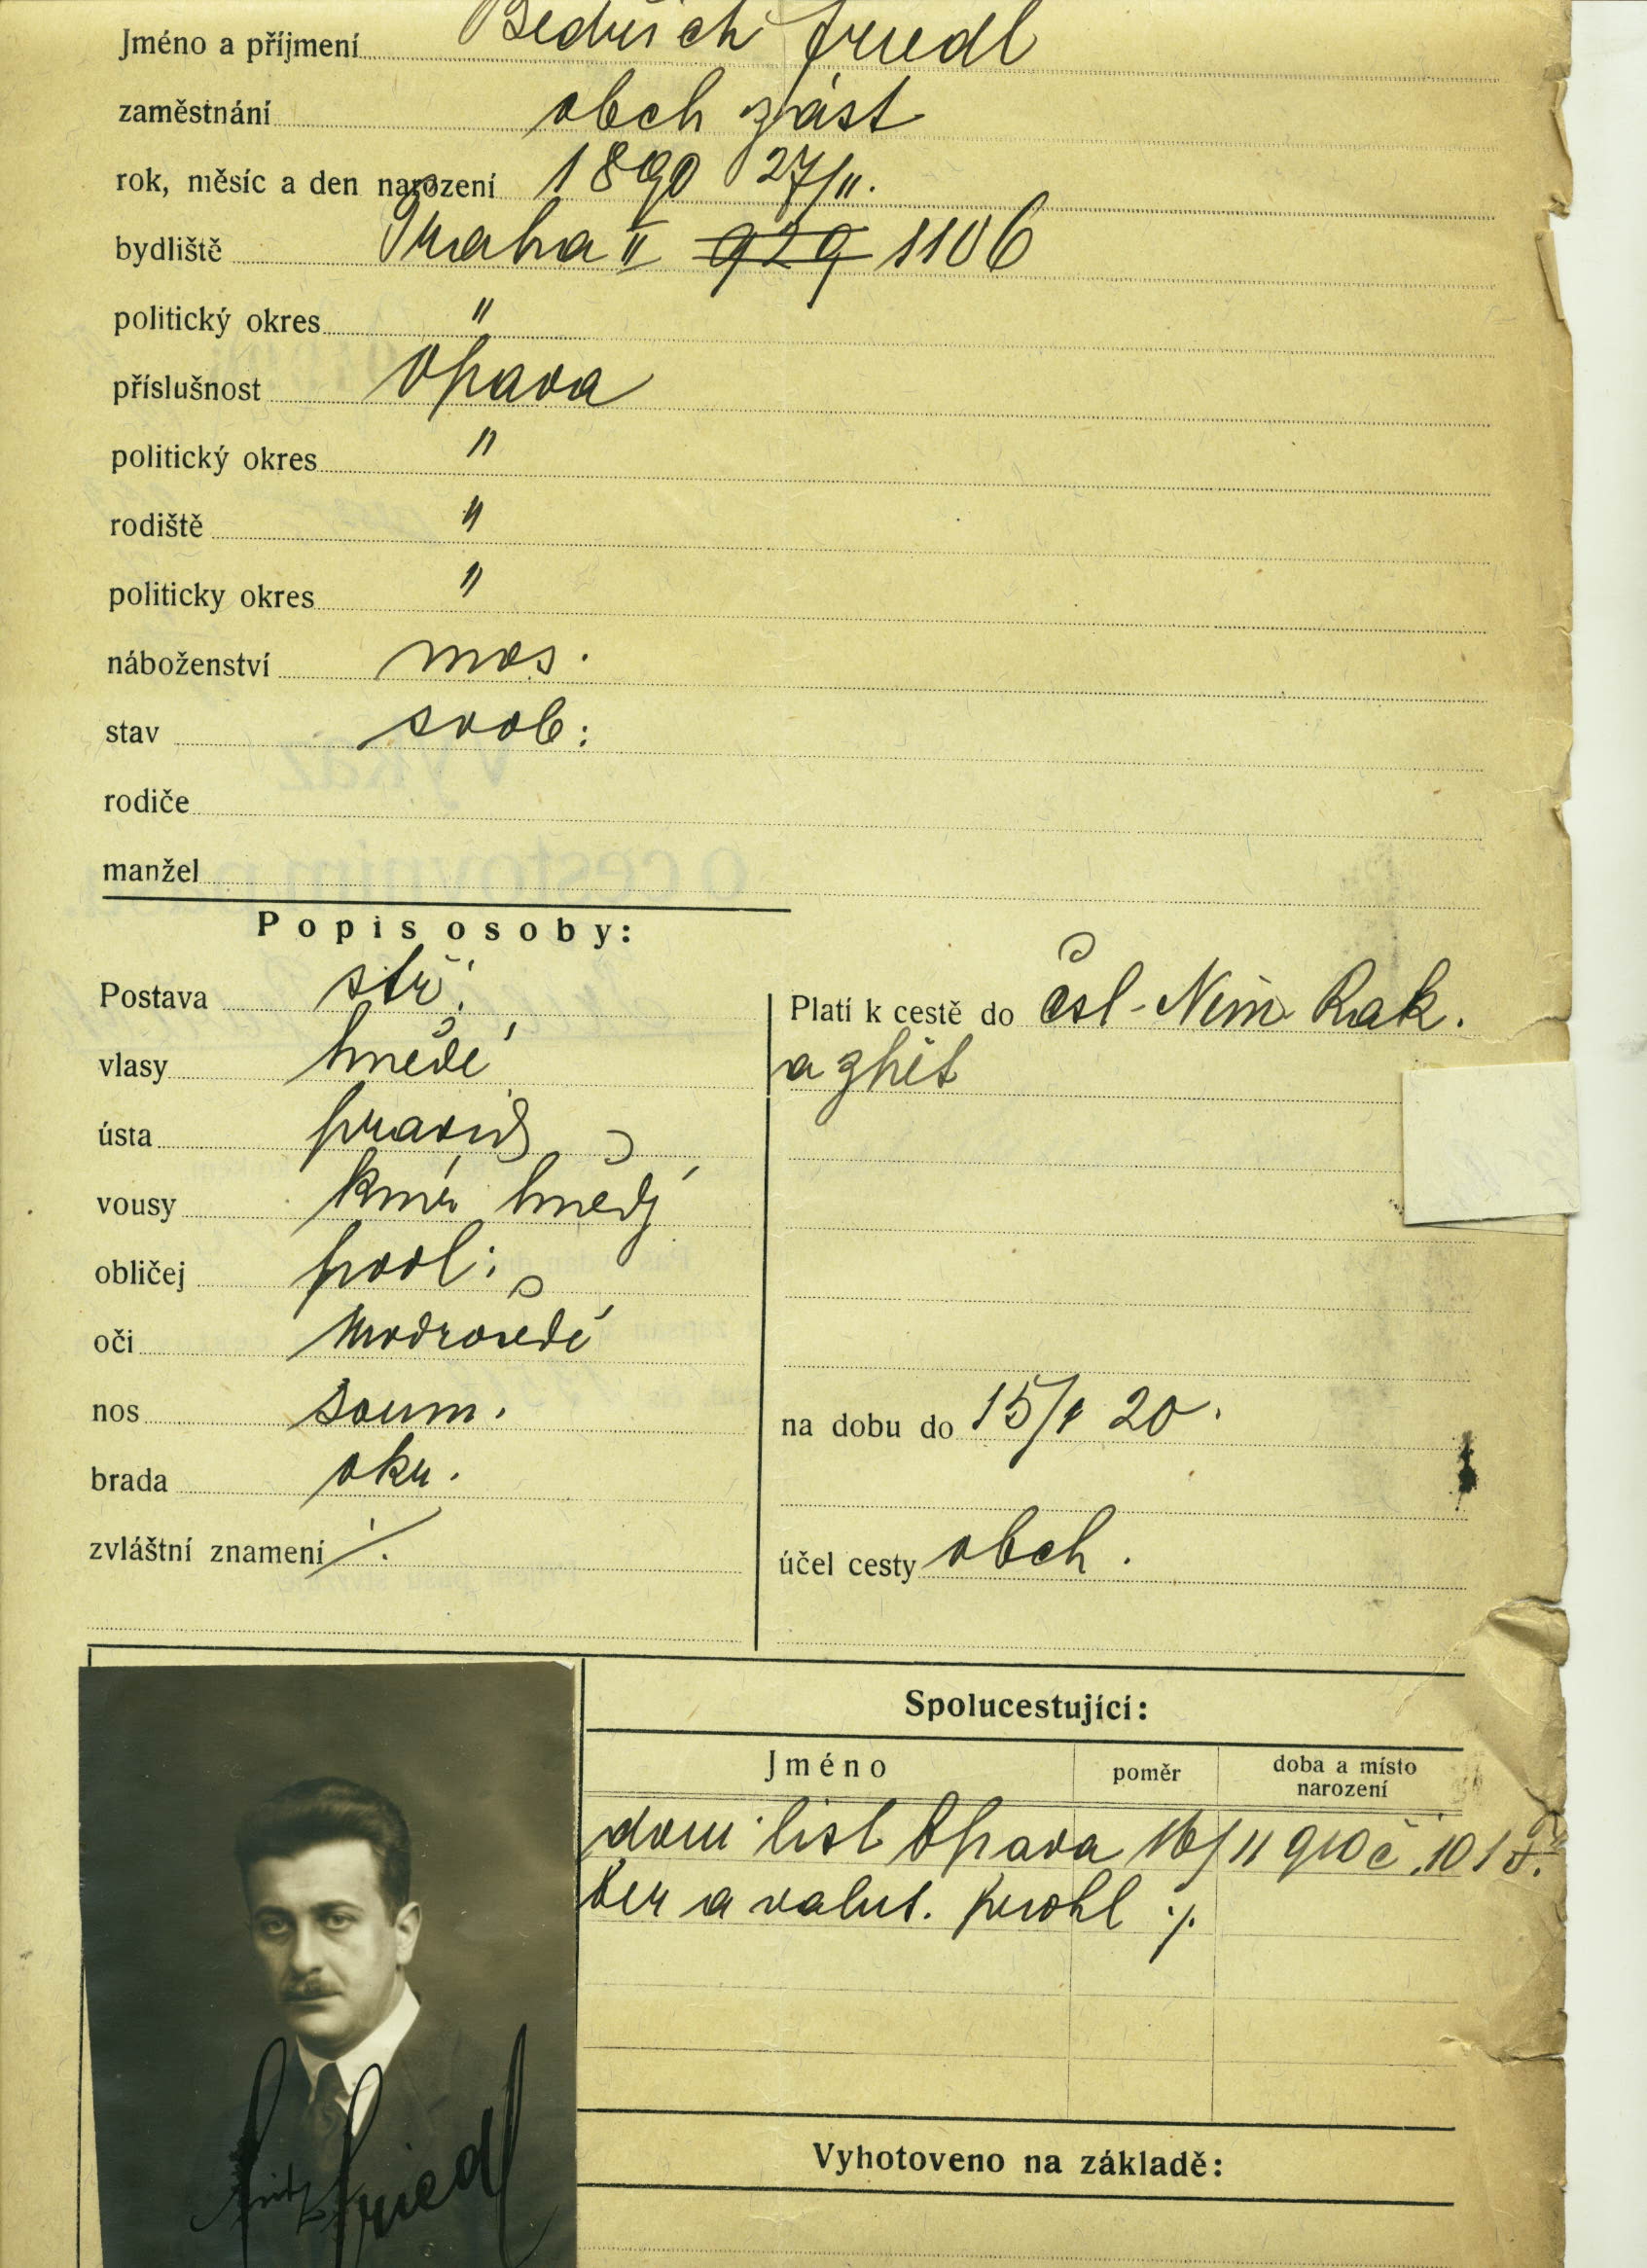 Jméno a příjmení Bedřich Friedl
zaměstnání obch zást
rok, měsíc a den narození 1890 27/II.
bydliště Praha II 929 1106
politický okres "
příslušnost Opava
politický okres "
rodiště "
politicky okres "
náboženství mos.
stav svob:
rodiče
manžel
Popis osoby:
Postava stř.
vlasy hnědé
ústa pravid
vousy knír hnědý
obličej podl:
oči modrošedé
nos soum.
brada okr.
zvláštní znamení ·/.
Platí k cestě do Čsl - Něm Rak.
a zpět
na dobu do 15/ 20.
účel cesty obch.
Spolucestující:
Jméno poměr doba a místo narození
dom. list Opava 16/II 910 č. 101
Ber a valut. prohl ·/.
Fritz Friedl
Vyhotoveno na základě: